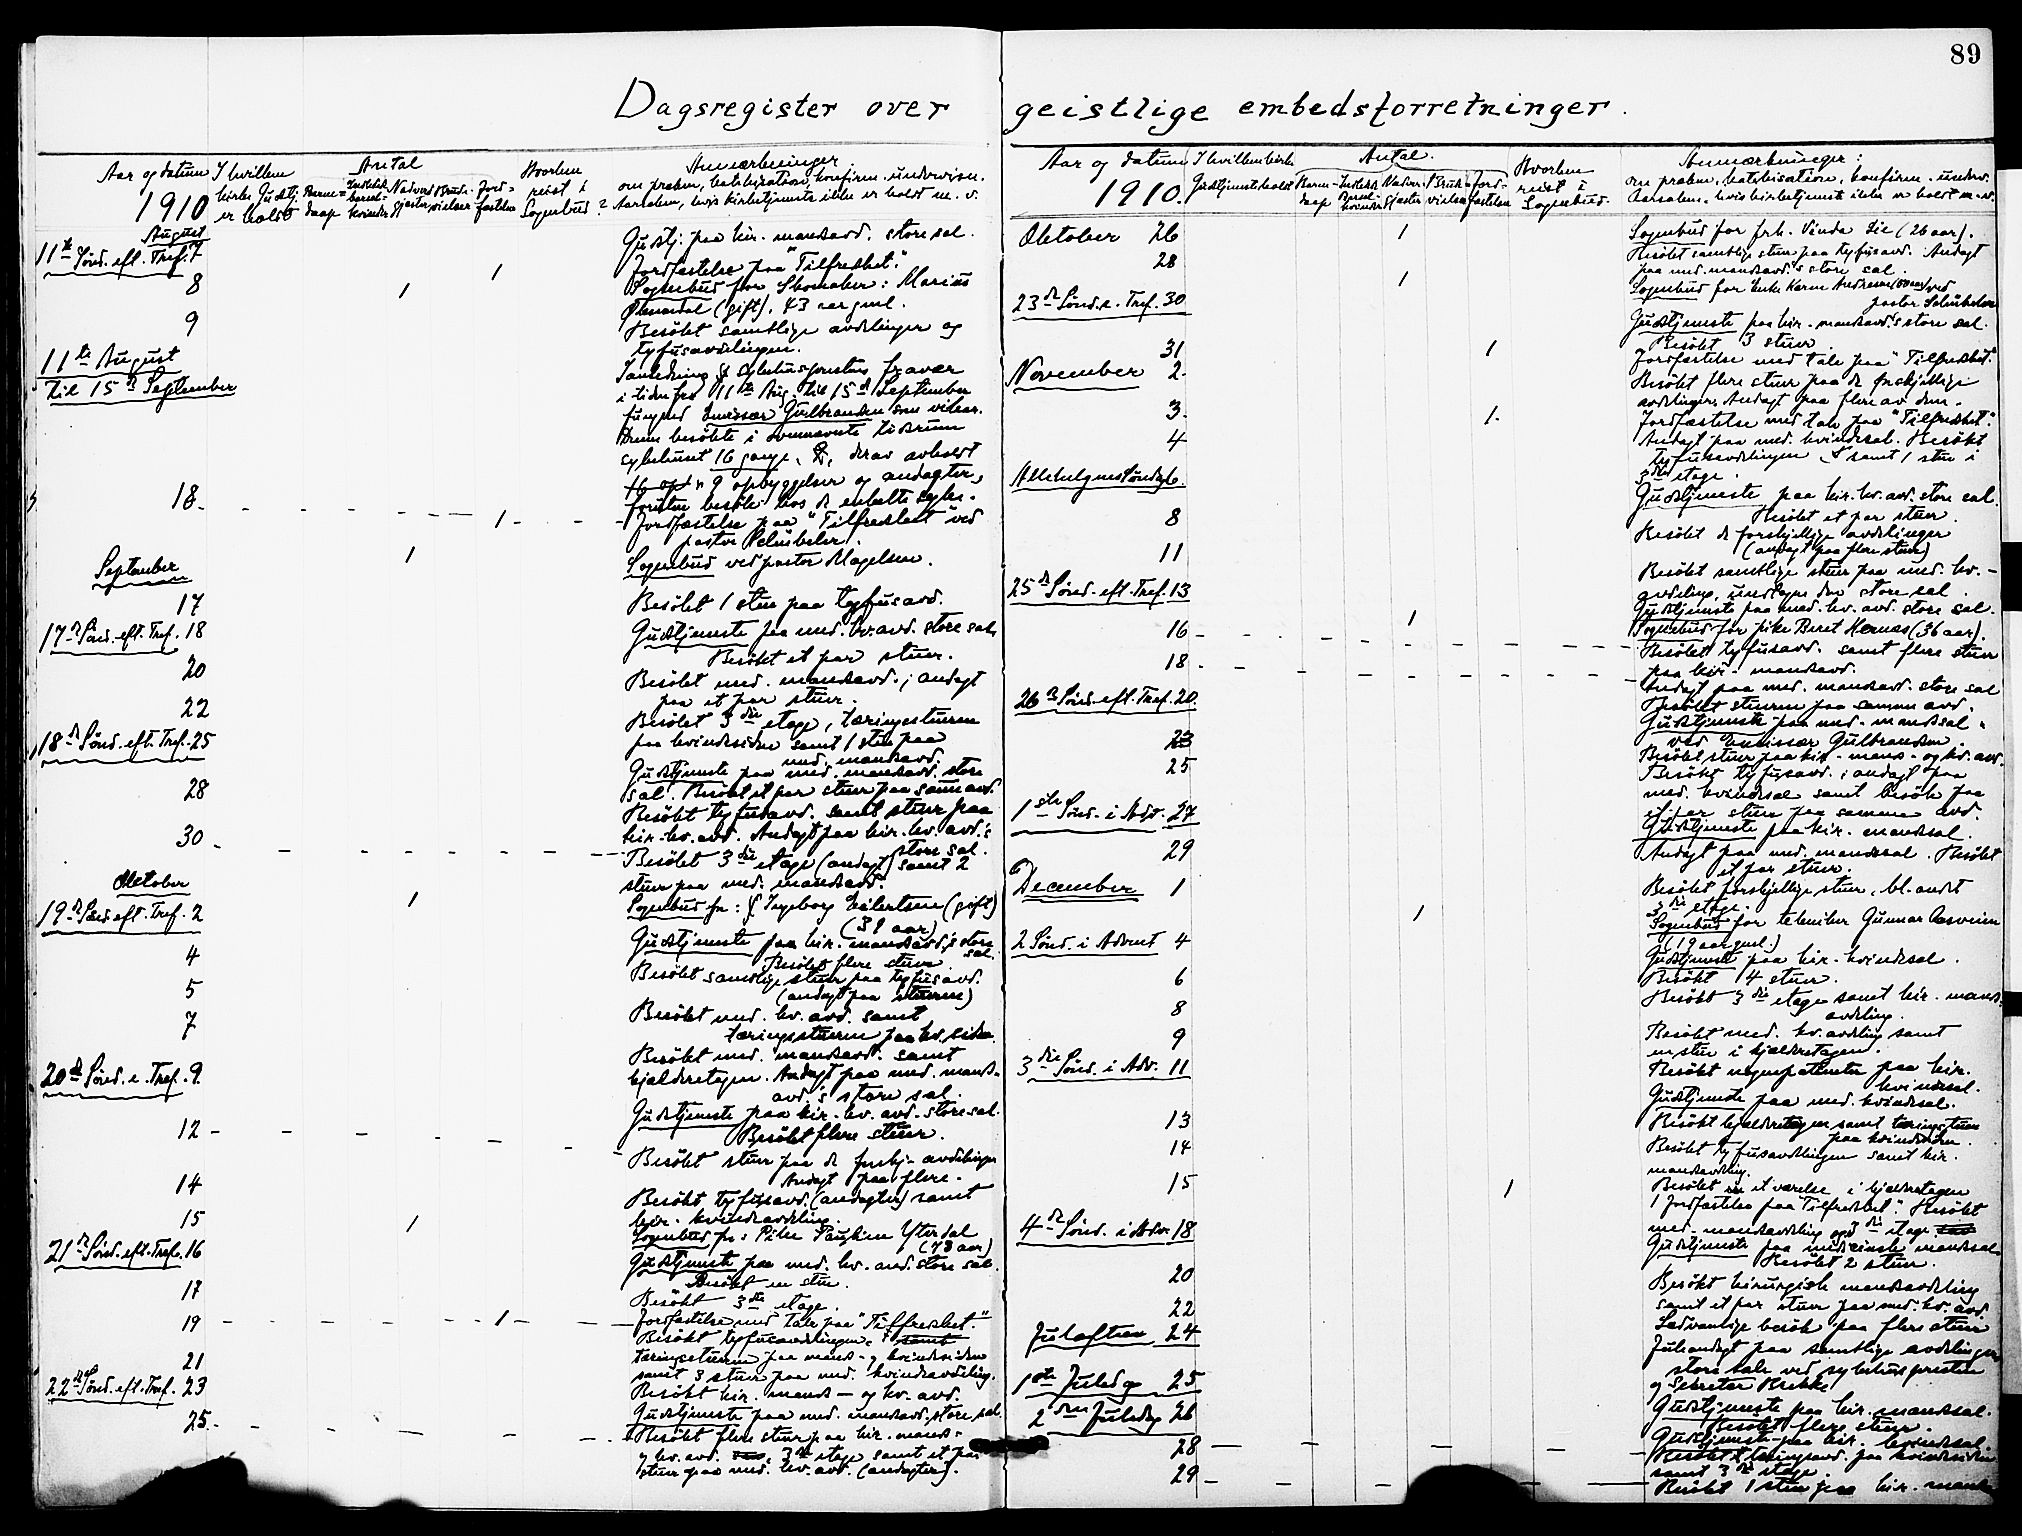 89
Dagsregister over geistlige embedsforretninger.
Aar og datum I hvilken Antal Hvorhen Anmærkninger
1910 kirke Gudstj. er holdt Barne=daap Nadverd Gjæster Bruds-vielser Jord=fæstelse reist i Sognebud? om præken, katekisation, konfirm. undervisn.
Aarsalen, hvis kirketjeneste ikke er holdt m. v.
August
11te Sønd. eft. Tref. 7 Gudstj. paa kir. mandsavd. store sal.
8 1 Jordfæstelse paa "Tilfredshet".
1 Sognebud for Skomaker: Marius
(gift), 43 aar gml.
9 Besøkt samtlige avdelinger og
tyfusavdelingen.
11te August
til 15d September
I anledning af sykehusprestens fravær
i tiden fra 11te Aug. til 15d September
fungerte Emissær Gulbrandsen som vikar.
Denne besøkte i ovennævnte tidsrum
sykehuset 16 gange, derav avholdt
9 opbyggelser og andagter,
foruten besøk hos de enkelte syke.
18. 1 Jordfæstelse paa "Tilfredshet" ved
pastor Schübeler.
September
1 Sognebud ved pastor Magelsen.
17 Besøkt 1 stue paa tyfusavd.
17d Sønd. eft. Tref. 18 Gudstjeneste paa med. kv. avd. store sal.
Besøkt et par stuer.
20 Besøkt med. mandsavd.; andagt
paa et par stuer.
22 Besøkt 3die etage, tæringsstuerne
paa kvindesiden samt 1 stue paa
med. mandsavd.
18d Sønd. eft. Tref. 25 Gudstjeneste paa med. mandsavd. store
sal. Besøkt et par stuer paa samme avd.
28 Besøkt tyfusavd. samt stuer paa
kir. kv. avd. Andagt paa kir. kv. avd.'s
store sal.
30 Besøkt 3die etage (andagt) samt 2
stuer paa med. mandsavd.
Oktober
19d Sønd. eft. Tref. 2 1 Sognebud for: Ingeborg Eilertsen (gift)
(39 aar)
Gudstjeneste paa kir. mandsavd.'s store
sal. Besøkt flere stuer.
4 Besøkt samtlige stuer paa tyfusavd.
(andagt paa stuerne)
5 Besøkt med. kv. avd. samt
tæringsstuerne paa kv. siden.
7 Besøkt med. mandsavd. samt
kjælderetagen. Andagt paa med. mands-
avd.'s store sal.
20de Sønd. e. Tref. 9. Gudstjeneste paa kir. kv. avd. store sal.
Besøkt flere stuer.
12 Besøkt stuer paa de forskj. avdelinger
Andagt paa flere.
14 Besøkt tyfusavd. (andagter) samt
kir. kvindeavdeling.
15 1 Sognebud for: Pike Pauline Yterdal
(78 aar)
21d Sønd. eft. Tref. 16 Gudstjeneste paa med. kv. avd. store sal.
Besøkt en stue.
17 Besøkt 3die etage.
19 1 Jordfæstelse med tale paa "Tilfredshet."
Besøkt tyfusavdelingen, samt
21 tæringsstuerne paa mands- og kvindesiden
samt 3 stuer paa med. kvindeavdeling.
22de Sønd. eft. Tref. 23 Besøkt kir. mands- og kv. avd.
Gudstjeneste paa med. mandsavd. store sal.
25. Besøkt flere stuer paa kir. mands-
og kv. avd. 3die etage samt et par
stuer paa med. kv. avd. (andagter).
Aar og datum I hvilken kirke Antal. Hvorhen Anmærkninger:
1910. Gudstjeneste holdt Barne-daap Nadver-gjæster Brude-vielser Jord-fæstelse reist i Sognebud. om præken, katekisation, konfirm. underv.
Aarsalen, hvis kirketjeneste ikke er holdt m. v.
Oktober 26 1 Sognebud for frk. Vinda Lie (26 aar).
28 Besøkt samtlige stuer paa tyfusavd. Andagt
paa med. mandsavd.'s store sal.
1 Sognebud for Enke Karen Andersen ved
pastor Schübeler
23d Sønd. e. Tref. 30 Gudstjeneste paa kir. mandsavd.'s store sal.
Besøkt 3 stuer
31 1 Jordfæstelse med tale paa "Tilfredshet."
November 2. Besøkt flere stuer paa de forskjellige
avdelinger. Andagt paa flere av dem.
3. 1. Jordfæstelse med tale paa "Tilfredshet."
4 Andagt paa med. kvindesal. Besøkt
tyfusavdelingen, samt 1 stue i
3die etage.
Allehelgenssøndag 6. Gudstjeneste paa kir. kv. avd. store sal.
Besøkt et par stuer.
8 Besøkt de forskjellige avdelinger
(andagt paa flere stuer)
11 Besøkt samtlige stuer paa med. kv.-
avdeling, undtagen den store sal.
25d Sønd. eft. Tref. 13 Gudstjeneste paa med. kv. avd. store sal.
16 1 Sognebud for pike Beret Hernæs (36 aar).
Besøkt tyfusavd. samt flere stuer
paa kir. mandsavd.
18. Andagt paa med. mandsavd. store sal
Besøkt stuerne paa samme avd.
26d Sønd. eft. Tref. 20. Gudstjeneste paa med. mandssal.
ved Emissær Gulbrandsen.
23 Besøkt stuer paa kir. mands- og kv. avd.
25 Besøkt tyfusavd.; andagt paa
med. kvindesal samt besøk paa
et par stuer paa samme avd.
1ste Sønd. i Adv. 27 Gudstjeneste paa kir. mandssal.
29 Andagt paa med. mandssal. Besøkt
et par stuer.
December 1 Besøkt forskjellige stuer, bl. andet
3die etage.
1 Sognebud for tekniker Gunnar Aasveien
(19 aar gml.)
2 Sønd. i Advent 4 Gudstjeneste paa kir. kvindesal.
6 Besøkt 4 stuer.
8 Besøkt 3die etage samt kir. mands-
avdeling.
9 Besøkt med. kv. avdeling samt
en stue i kjælderetagen.
3die Sønd. i Adv. 11 Besøkt nogen patienter paa kir.
kvindesal.
Gudstjeneste paa med. kvindesal.
13 Besøkt kjælderetagen samt tæringsstuen
paa kvindesiden.
14 Besøkt tyfusavdelingen samt kir.
mandsavdeling.
15 1 Besøkt et værelse i kjælderetagen
1 Jordfæstelse paa "Tilfredshet." Besøkt
med. mandsavdeling og 3die etage
4de Sønd. i Adv. 18 Gudstjeneste paa medicinske mandssal.
Besøkt 2 stuer.
20 Besøkt kirurgisk mandsavdeling
samt et par stuer paa med. kv. avd.
22 Sedvanlige besøk paa flere stuer
Juleaften 24 Juleandagt paa samtlige avdelinger
store sale ved sykehuspresten
og Sekretær Brekke
1ste Juledag 25 Gudstjeneste paa kir. mandssal.
Besøkt flere stuer.
2den Juledag 26 Gudstjeneste paa kir. kvindesal.
28 Besøkt tæringsavd. paa kvindesiden
samt 3die etage.
29 Besøkt 1 stue paa kir. mands-